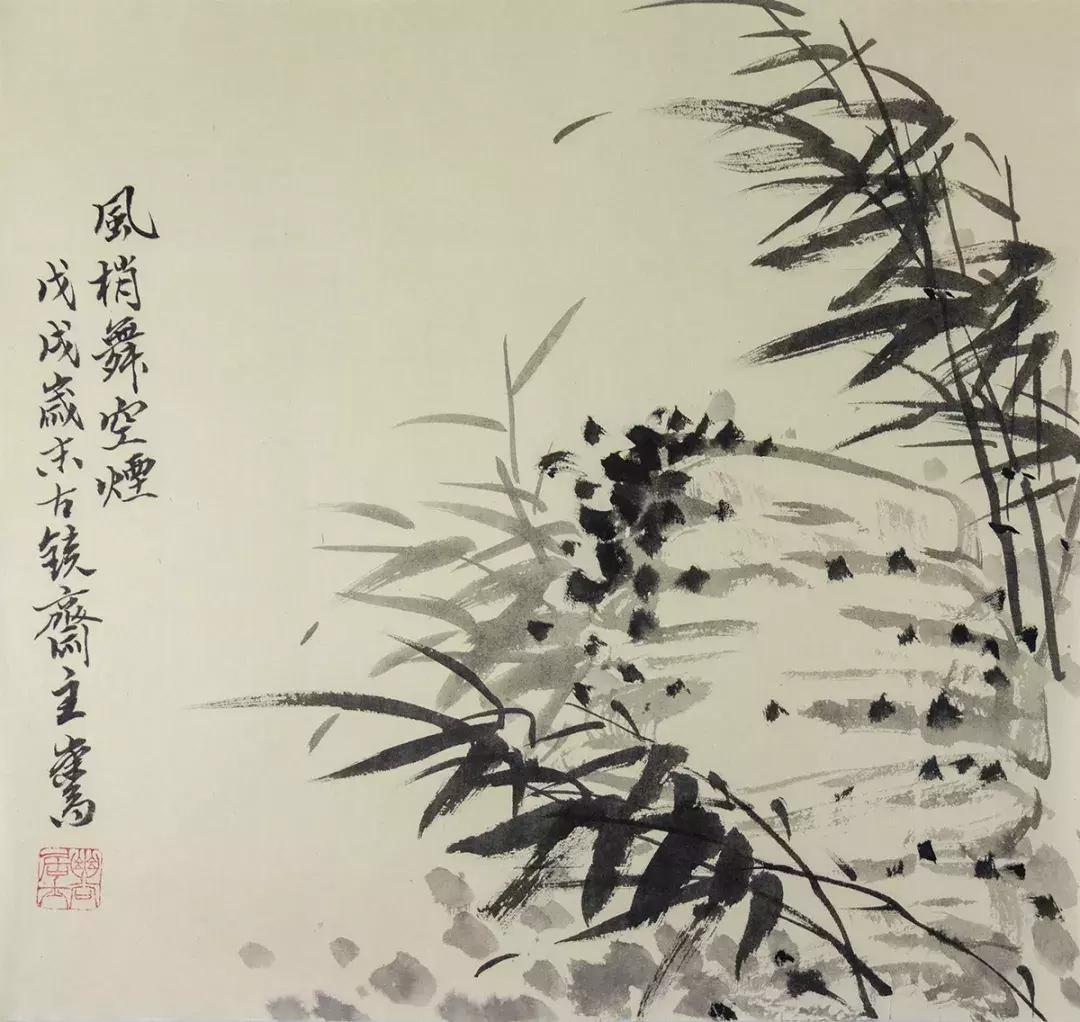 風梢舞空煙
戊戌歲末古鏡齋主